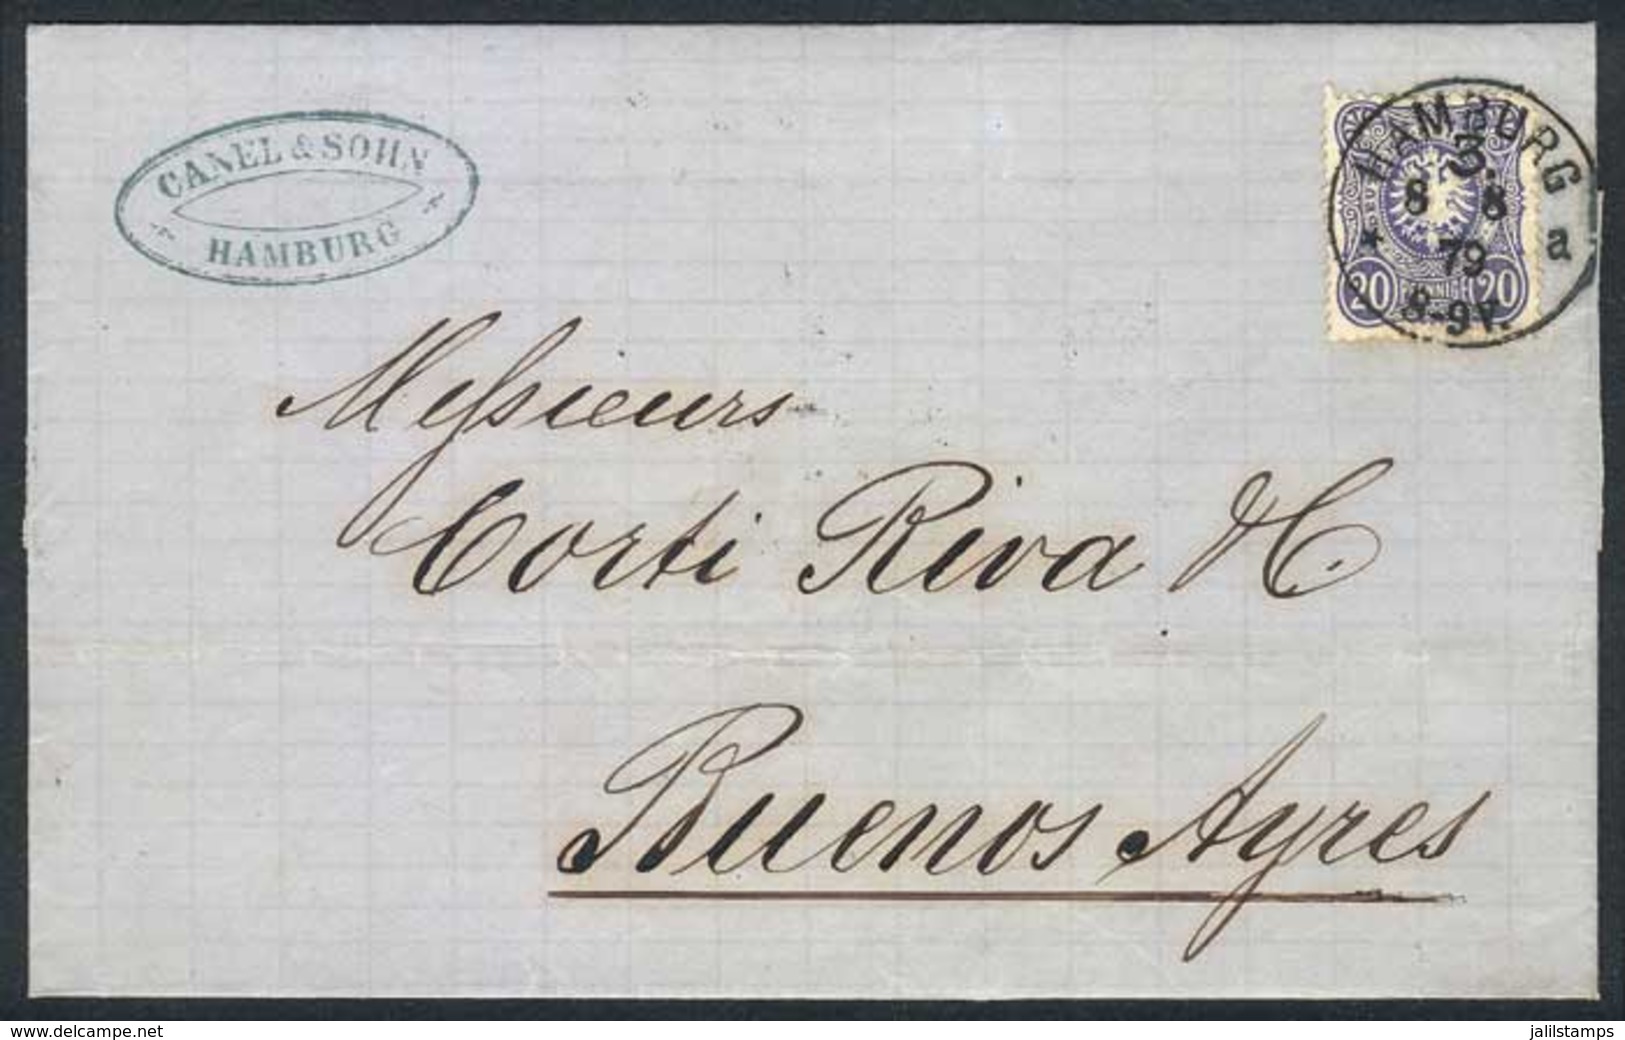 CANEL & SOHN
HAMBURG
HAMBURG a
3.
8 8
79
8-9V.
20 PFENNIGE 20
Messieurs
Corti Riva & C.
Buenos Ayres
www.delcampe.net
jalilstamps